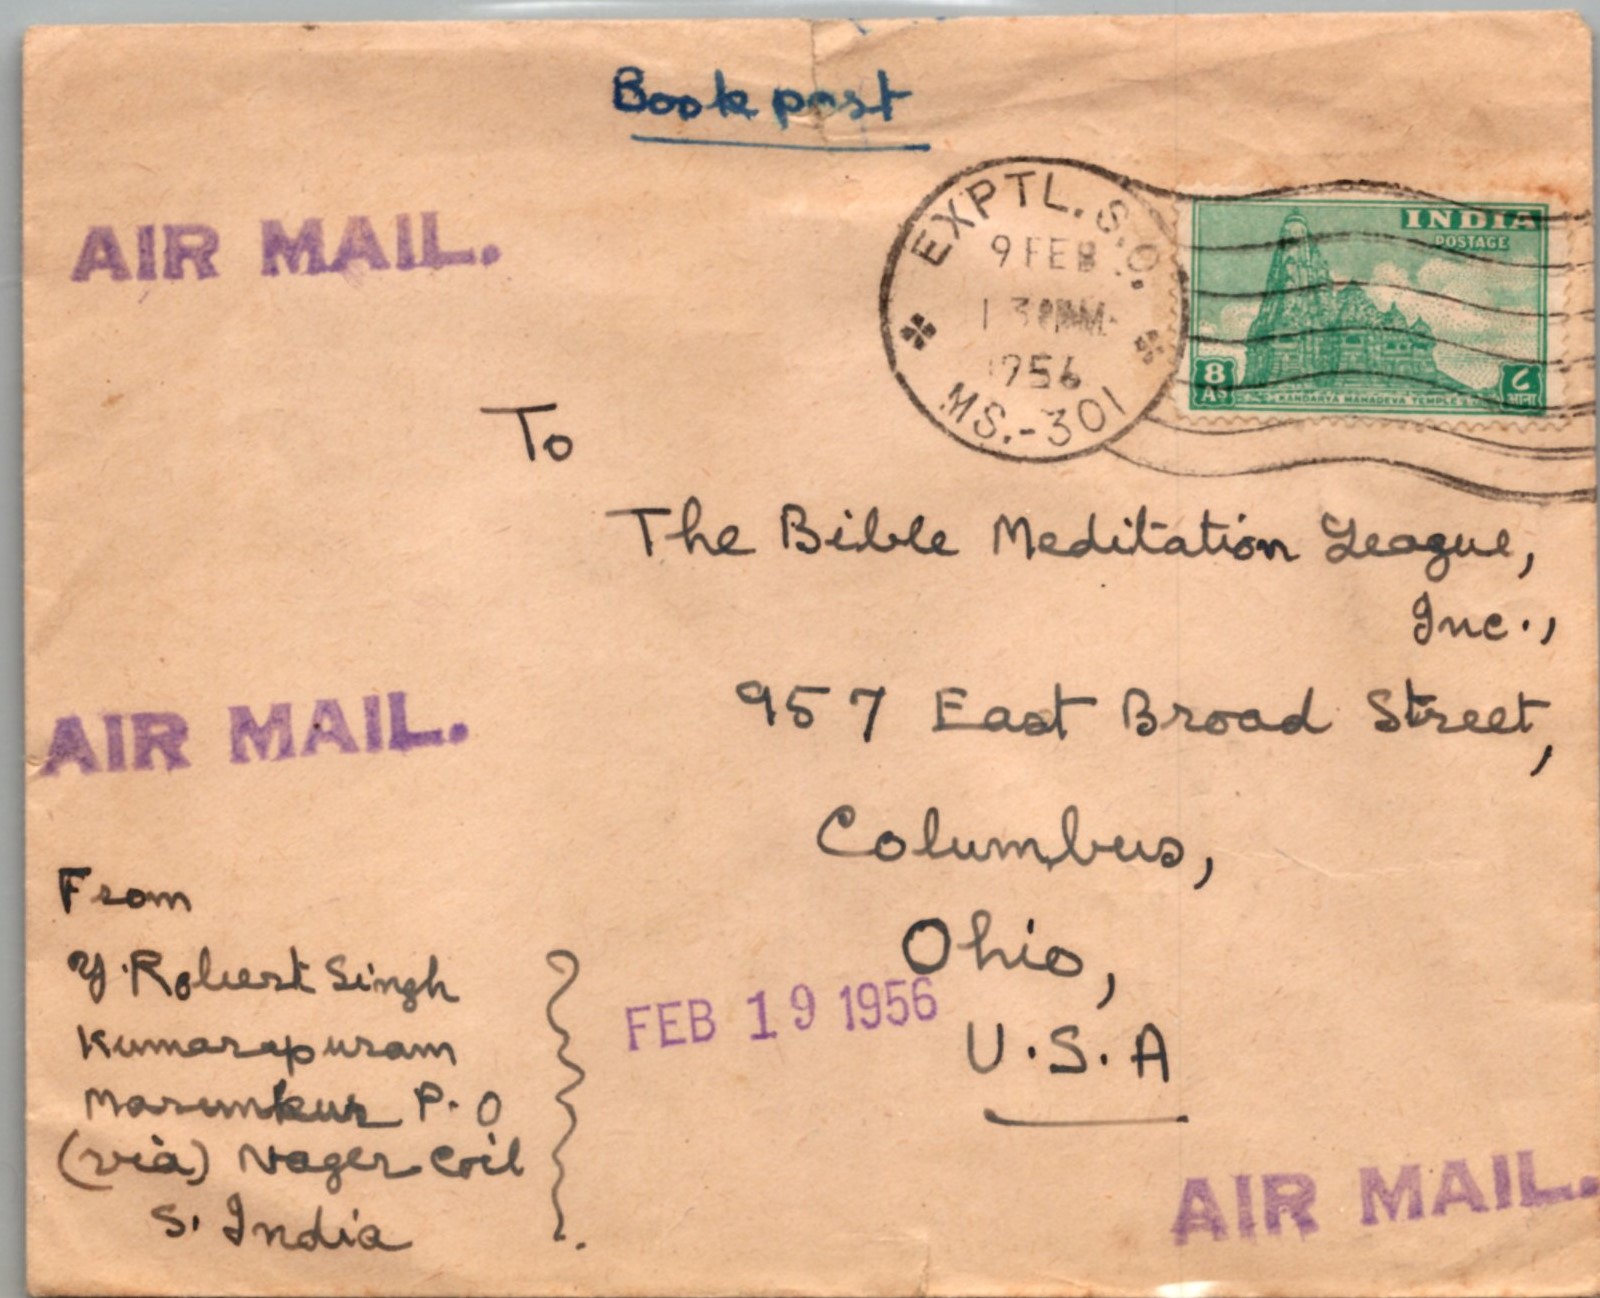 Book post
AIR MAIL.
EXPTL. S.O.
9 FEB
1956
MS.-301
INDIA
POSTAGE
8
As
८
आना
KANDARYA MAHADEVA TEMPLE
To
The Bible Meditation League,
Inc.,
957 East Broad Street,
Columbus,
Ohio,
U.S.A
AIR MAIL.
From
Y. Robert Singh
Kumarapuram
Marunkur P.O
(via) Nager coil
S. India
FEB 19 1956
AIR MAIL.